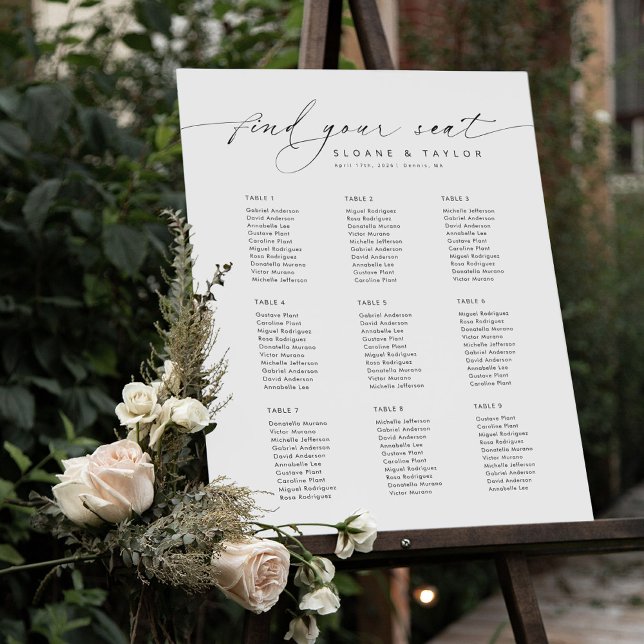 find your seat
SLOANE & TAYLOR
April 17th, 2026 | Dennis, MA
TABLE 1
Gabriel Anderson
David Anderson
Annabelle Lee
Gustave Plant
Caroline Plant
Miguel Rodriguez
Rosa Rodriguez
Donatella Murano
Victor Murano
Michelle Jefferson
TABLE 2
Miguel Rodriguez
Rosa Rodriguez
Donatella Murano
Victor Murano
Michelle Jefferson
Gabriel Anderson
David Anderson
Annabelle Lee
Gustave Plant
Caroline Plant
TABLE 3
Michelle Jefferson
Gabriel Anderson
David Anderson
Annabelle Lee
Gustave Plant
Caroline Plant
Miguel Rodriguez
Rosa Rodriguez
Donatella Murano
Victor Murano
TABLE 4
Gustave Plant
Caroline Plant
Miguel Rodriguez
Rosa Rodriguez
Donatella Murano
Victor Murano
Michelle Jefferson
Gabriel Anderson
David Anderson
Annabelle Lee
TABLE 5
Gabriel Anderson
David Anderson
Annabelle Lee
Gustave Plant
Caroline Plant
Miguel Rodriguez
Rosa Rodriguez
Donatella Murano
Victor Murano
Michelle Jefferson
TABLE 6
Miguel Rodriguez
Rosa Rodriguez
Donatella Murano
Victor Murano
Michelle Jefferson
Gabriel Anderson
David Anderson
Annabelle Lee
Gustave Plant
Caroline Plant
TABLE 7
Donatella Murano
Victor Murano
Michelle Jefferson
Gabriel Anderson
David Anderson
Annabelle Lee
Gustave Plant
Caroline Plant
Miguel Rodriguez
Rosa Rodriguez
TABLE 8
Michelle Jefferson
Gabriel Anderson
David Anderson
Annabelle Lee
Gustave Plant
Caroline Plant
Miguel Rodriguez
Rosa Rodriguez
Donatella Murano
Victor Murano
TABLE 9
Gustave Plant
Caroline Plant
Miguel Rodriguez
Rosa Rodriguez
Donatella Murano
Victor Murano
Michelle Jefferson
Gabriel Anderson
David Anderson
Annabelle Lee